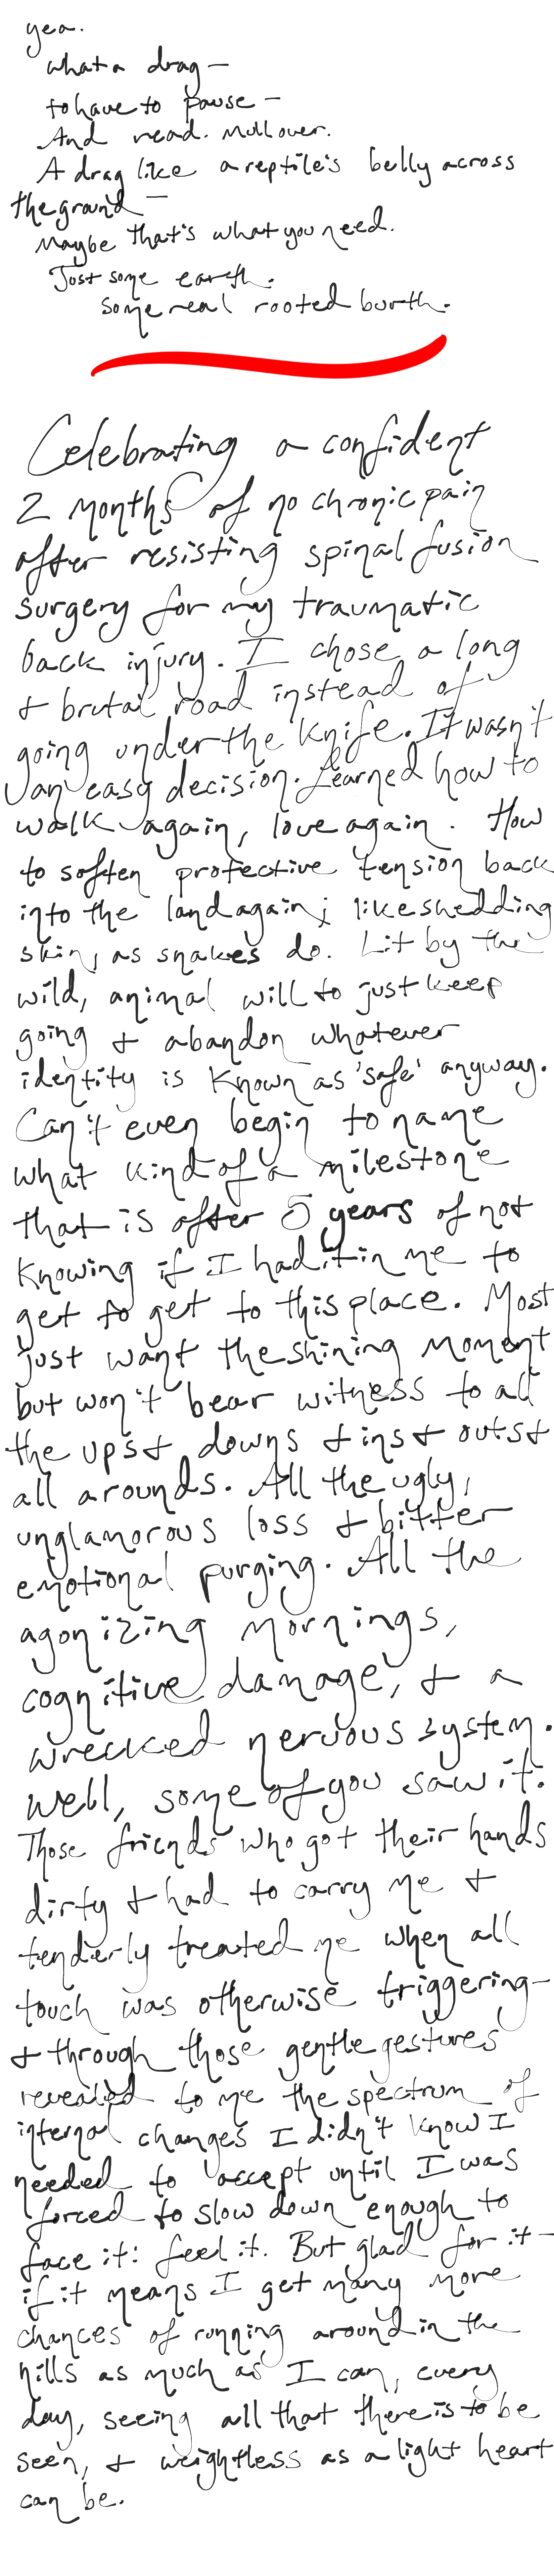 yea.
what a drag—
to have to pause—
And read. Mull over.
A drag like a reptile's belly across
the ground—
Maybe that's what you need.
Just some earth.
Some real rooted burth.
Celebrating a confident
2 months of no chronic pain
after resisting spinal fusion
surgery for my traumatic
back injury. I chose a long
& brutal road instead of
going under the knife. It wasn't
an easy decision. Learned how to
walk again, love again. How
to soften protective tension back
into the land again; like shedding
skin, as snakes do. Lit by the
wild, animal will to just keep
going & abandon whatever
identity is known as 'safe' anyway.
Can't even begin to name
what kind of a milestone
that is after 5 years of not
knowing if I had it in me to
get to get to this place. Most
just want the shining moment
but won't bear witness to all
the ups & downs & ins & outs &
all arounds. All the ugly,
unglamorous loss & bitter
emotional purging. All the
agonizing mornings,
cognitive damage, & a
wrecked nervous system.
Well, some of you saw it.
Those friends who got their hands
dirty & had to carry me &
tenderly treated me when all
touch was otherwise triggering—
& through those gentle gestures
revealed to me the spectrum of
internal changes I didn't know I
needed to accept until I was
forced to slow down enough to
face it: feel it. But glad for it—
if it means I get many more
chances of running around in the
hills as much as I can, every
day, seeing all that there is to be
seen, & weightless as a light heart
can be.